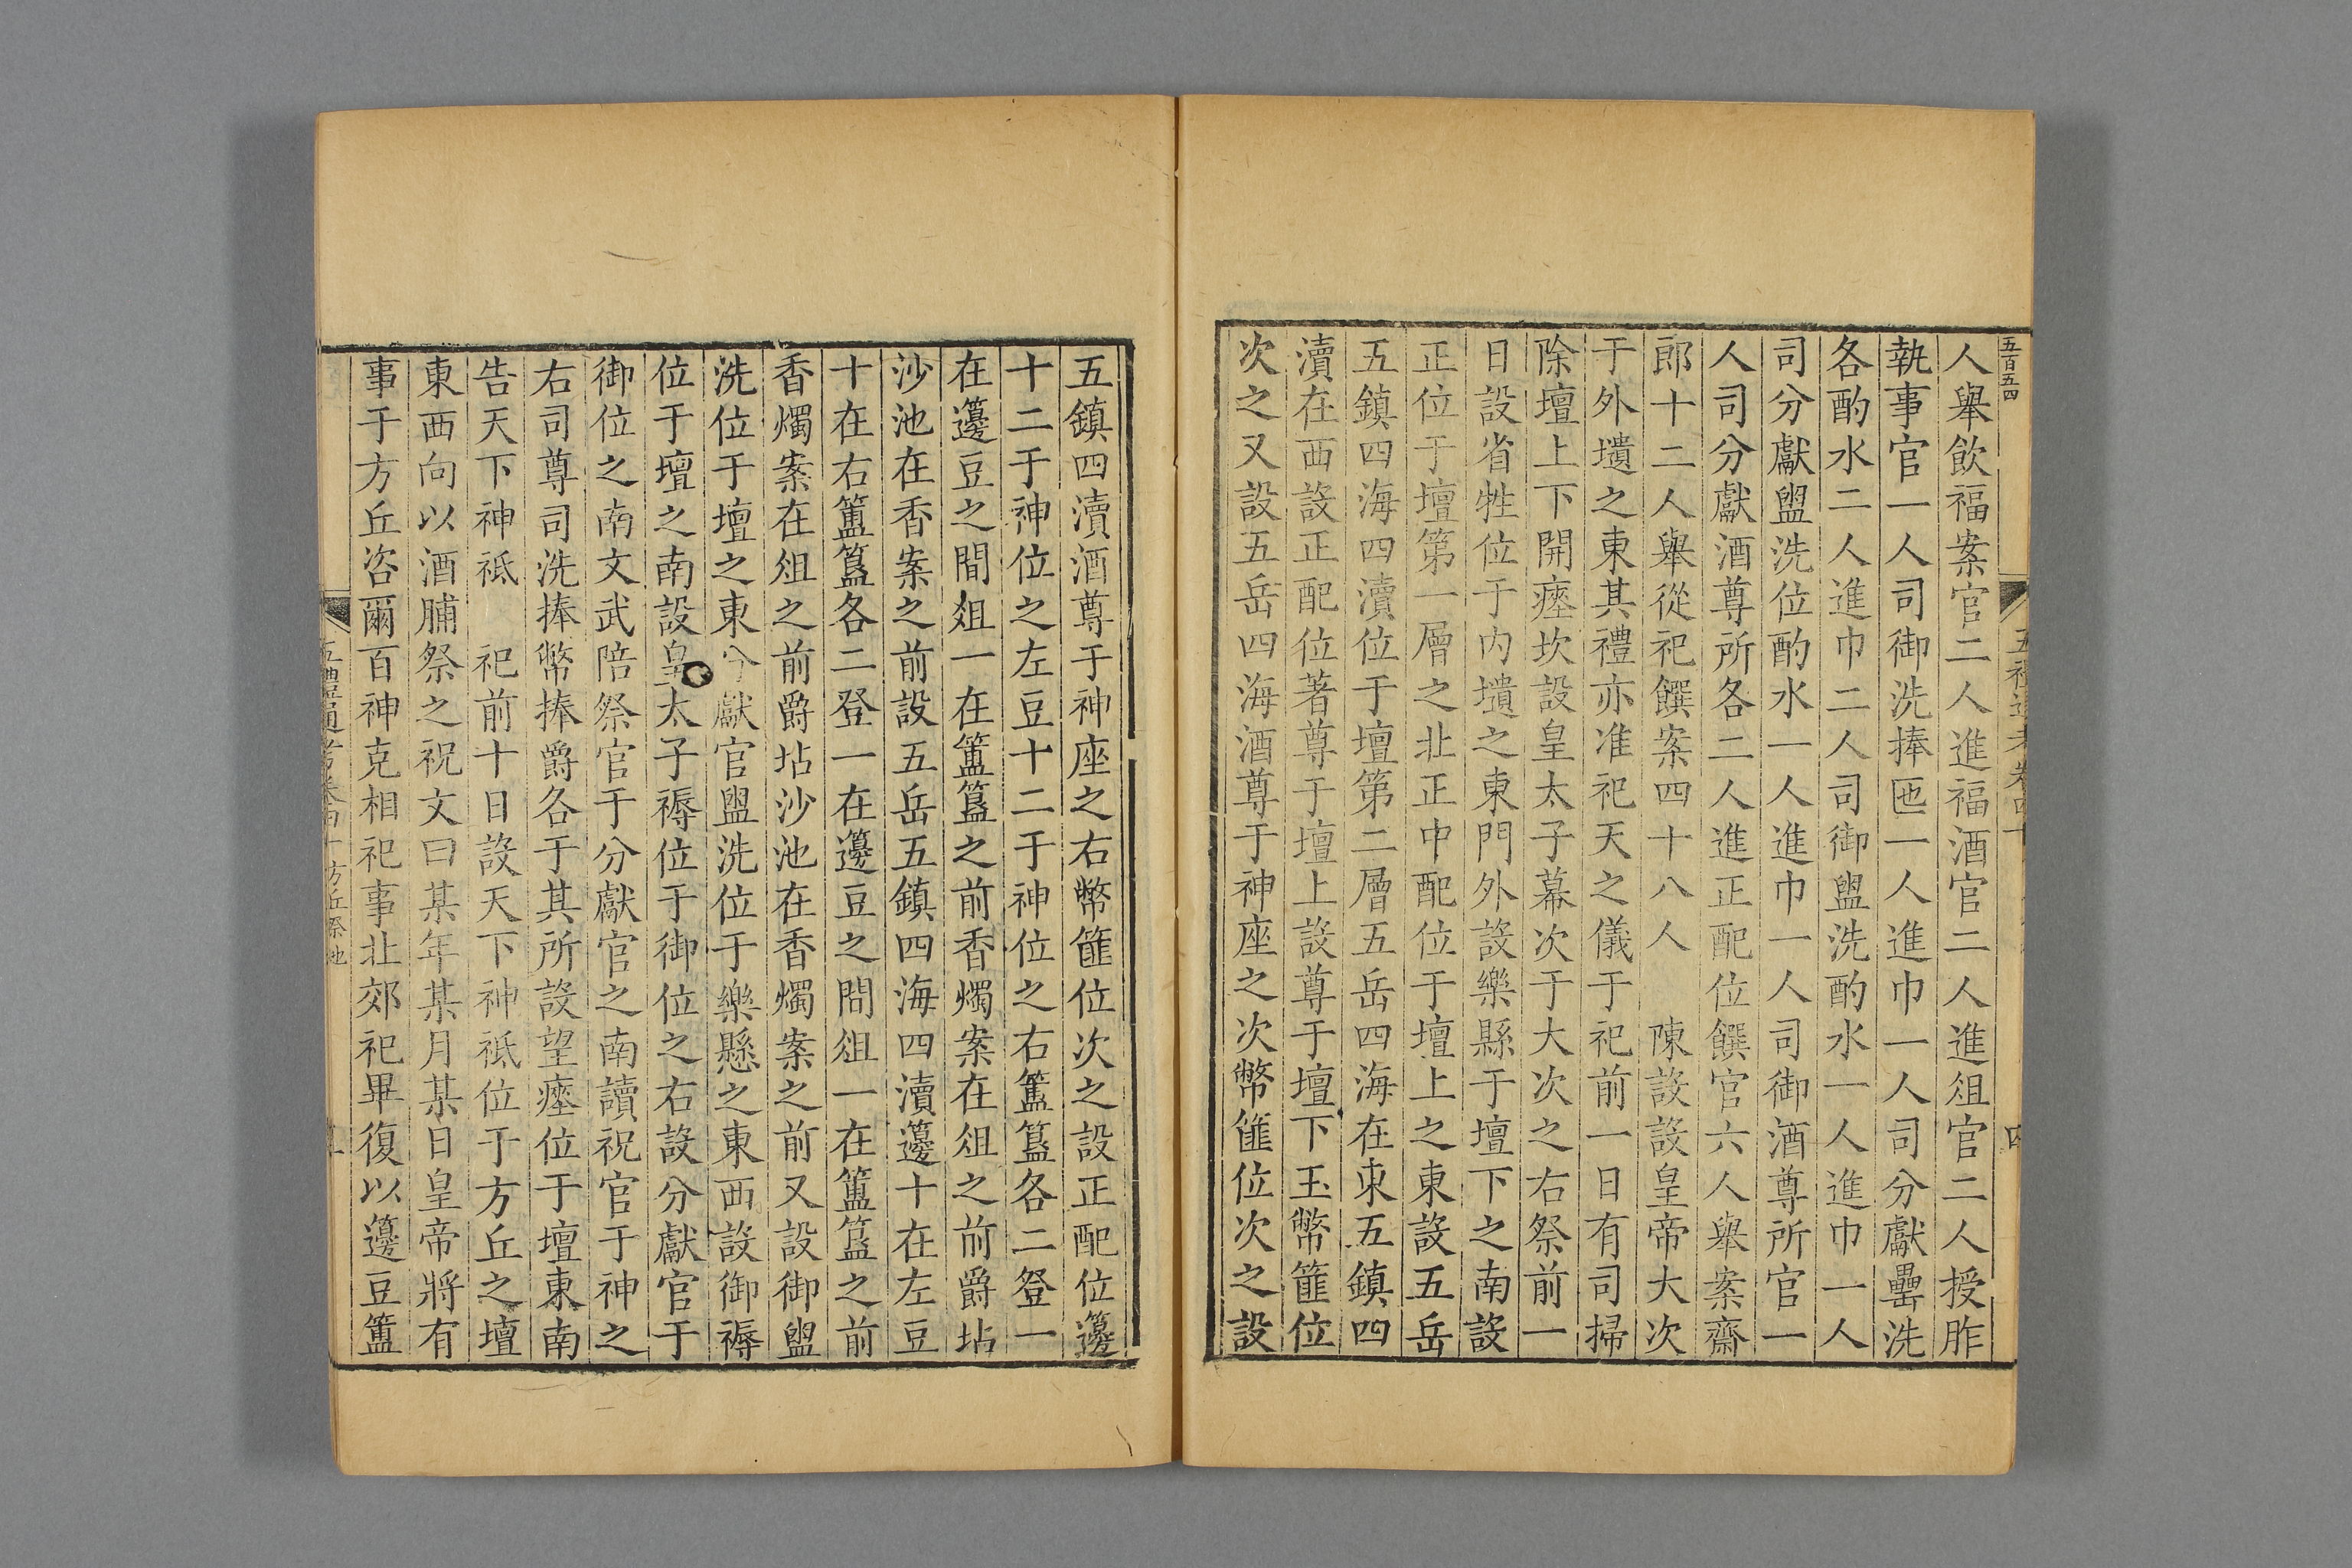 五百五四
人舉飲福案官二人進福酒官二人進俎官二人授胙
執事官一人司御洗捧匜一人進巾一人司分獻罍洗
各酌水二人進巾二人司御盥洗酌水一人進巾一人
司分獻盥洗位酌水一人進巾一人司御酒尊所官一
人司分獻酒尊所各二人進正配位饌官六人舉案齋
郎十二人舉從祀饌案四十八人　陳設設皇帝大次
于外壝之東其禮亦准祀天之儀于祀前一日有司掃
除壇上下開瘞坎設皇太子幕次于大次之右祭前一
日設省牲位于内壝之東門外設樂縣于壇下之南設
正位于壇第一層之北正中配位于壇上之東設五岳
五鎮四海四瀆位于壇第二層五岳四海在東五鎮四
瀆在西設正配位著尊于壇上設尊于壇下玉幣篚位
次之又設五岳四海酒尊于神座之次幣篚位次之設
五鎮四瀆酒尊于神座之右幣篚位次之設正配位籩
十二于神位之左豆十二于神位之右簠簋各二登一
在籩豆之間俎一在簠簋之前香燭案在俎之前爵坫
沙池在香案之前設五岳五鎮四海四瀆籩十在左豆
十在右簠簋各二登一在籩豆之間俎一在簠簋之前
香燭案在俎之前爵坫沙池在香燭案之前又設御盥
洗位于壇之東分獻官盥洗位于樂懸之東西設御褥
位于壇之南設皇太子褥位于御位之右設分獻官于
御位之南文武陪祭官于分獻官之南讀祝官于神之
右司尊司洗捧幣捧爵各于其所設望瘞位于壇東南
告天下神祗　祀前十日設天下神祗位于方丘之壇
東西向以酒脯祭之祝文曰某年某月某日皇帝將有
事于方丘咨爾百神克相祀事北郊祀畢復以籩豆簠
五禮通考卷四十 方丘祭地